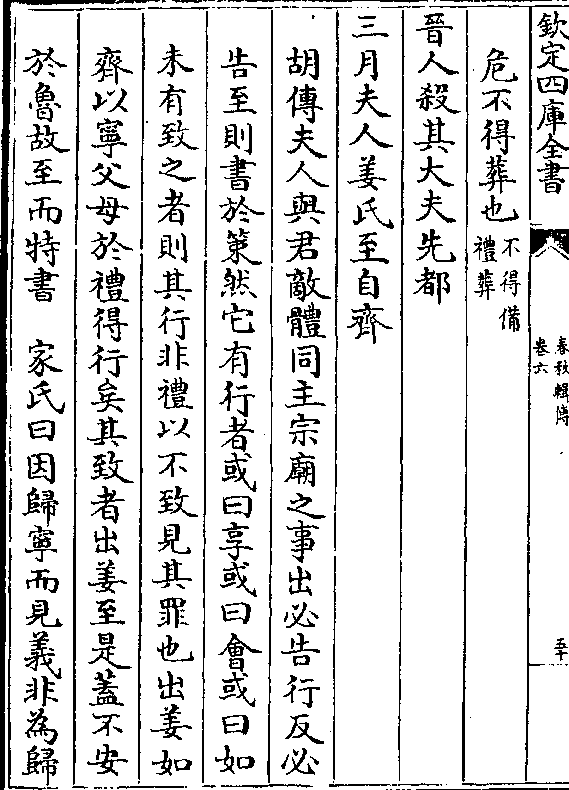 欽定四庫全書
春秋輯傳
卷六
五十
危不得葬也不得備
禮葬
晉人殺其大夫先都
三月夫人姜氏至自齊
胡傳夫人與君敵體同主宗廟之事出必告行反必
告至則書於策然它有行者或曰享或曰會或曰如
未有致之者則其行非禮以不致見其罪也出姜如
齊以寧父母於禮得行矣其致者出姜至是蓋不安
於魯故至而特書　家氏曰因歸寧而見義非為歸